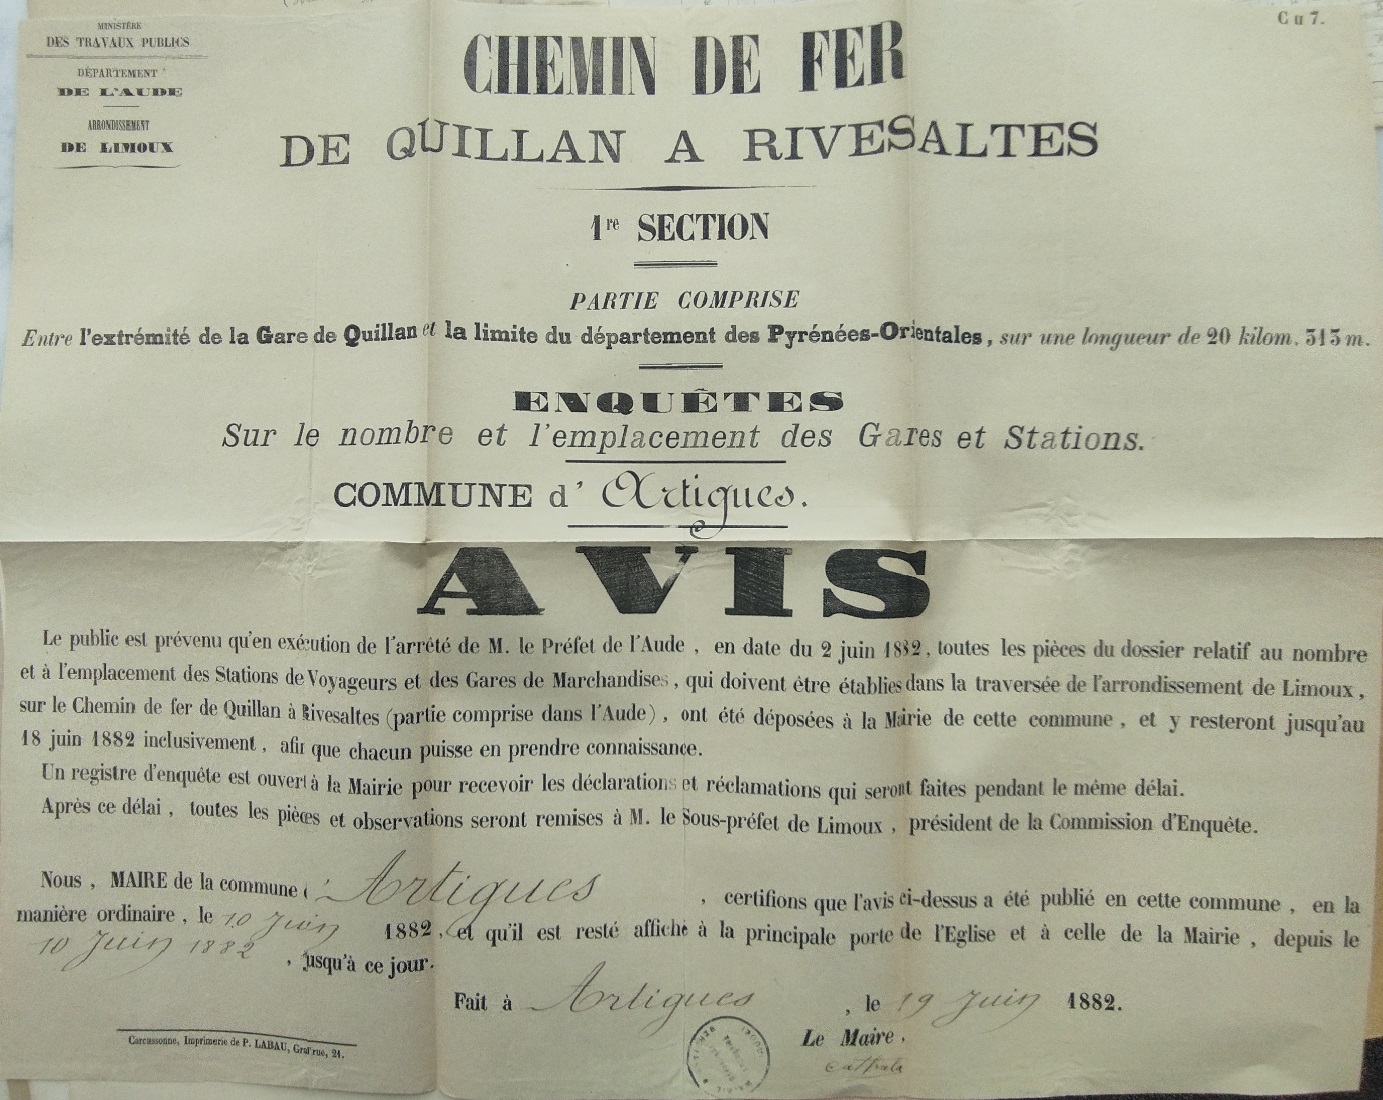 Cu7.
MINISTÈRE
DES TRAVAUX PUBLICS
DÉPARTEMENT
DE L'AUDE
ARRONDISSEMENT
DE LIMOUX
CHEMIN DE FER
DE QUILLAN A RIVESALTES
1re SECTION
PARTIE COMPRISE
Entre l'extrémité de la Gare de Quillan et la limite du département des Pyrénées-Orientales, sur une longueur de 20 kilom. 313 m.
ENQUÊTES
Sur le nombre et l'emplacement des Gares et Stations.
COMMUNE d' Artigues.
AVIS
Le public est prévenu qu'en exécution de l'arrêté de M. le Préfet de l'Aude, en date du 2 juin 1882, toutes les pièces du dossier relatif au nombre
et à l'emplacement des Stations de Voyageurs et des Gares de Marchandises, qui doivent être établies dans la traversée de l'arrondissement de Limoux,
sur le Chemin de fer de Quillan à Rivesaltes (partie comprise dans l'Aude), ont été déposées à la Mairie de cette commune, et y resteront jusqu'au
18 juin 1882 inclusivement, afin que chacun puisse en prendre connaissance.
Un registre d'enquête est ouvert à la Mairie pour recevoir les déclarations et réclamations qui seront faites pendant le même délai.
Après ce délai, toutes les pièces et observations seront remises à M. le Sous-préfet de Limoux, président de la Commission d'Enquête.
Nous, MAIRE de la commune d' Artigues, certifions que l'avis ci-dessus a été publié en cette commune, en la
manière ordinaire, le 10 Juin 1882, et qu'il est resté affiché à la principale porte de l'Eglise et à celle de la Mairie, depuis le
10 Juin 1882, jusqu'à ce jour.
Fait à Artigues, le 19 Juin 1882.
Le Maire,
Carcassonne, Imprimerie de P. LABAU, Grand'rue, 21.